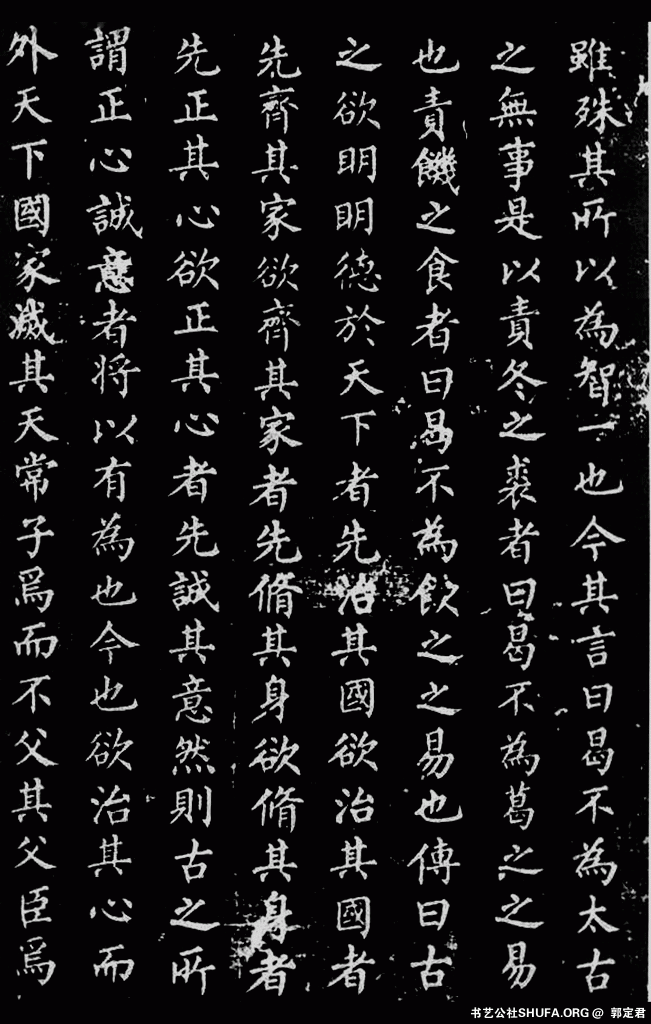 雖殊其所以為智一也今其言曰曷不為太古
之無事是以責冬之裘者曰曷不為葛之之易
也責饑之食者曰曷不為飲之之易也傳曰古
之欲明明德於天下者先治其國欲治其國者
先齊其家欲齊其家者先脩其身欲脩其身者
先正其心欲正其心者先誠其意然則古之所
謂正心誠意者将以有為也今也欲治其心而
外天下國家滅其天常子焉而不父其父臣焉
书艺公社SHUFA.ORG @ 郭定君